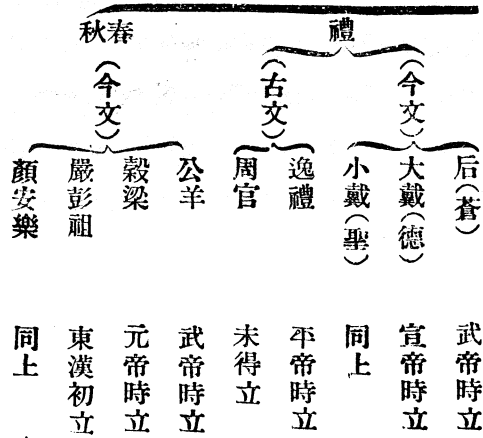 禮
（今文）
后（蒼）　武帝時立
大戴（德）　宣帝時立
小戴（聖）　同上
（古文）
逸禮　平帝時立
周官　未得立
春秋
（今文）
公羊　武帝時立
穀梁　元帝時立
嚴彭祖　東漢初立
顏安樂　同上